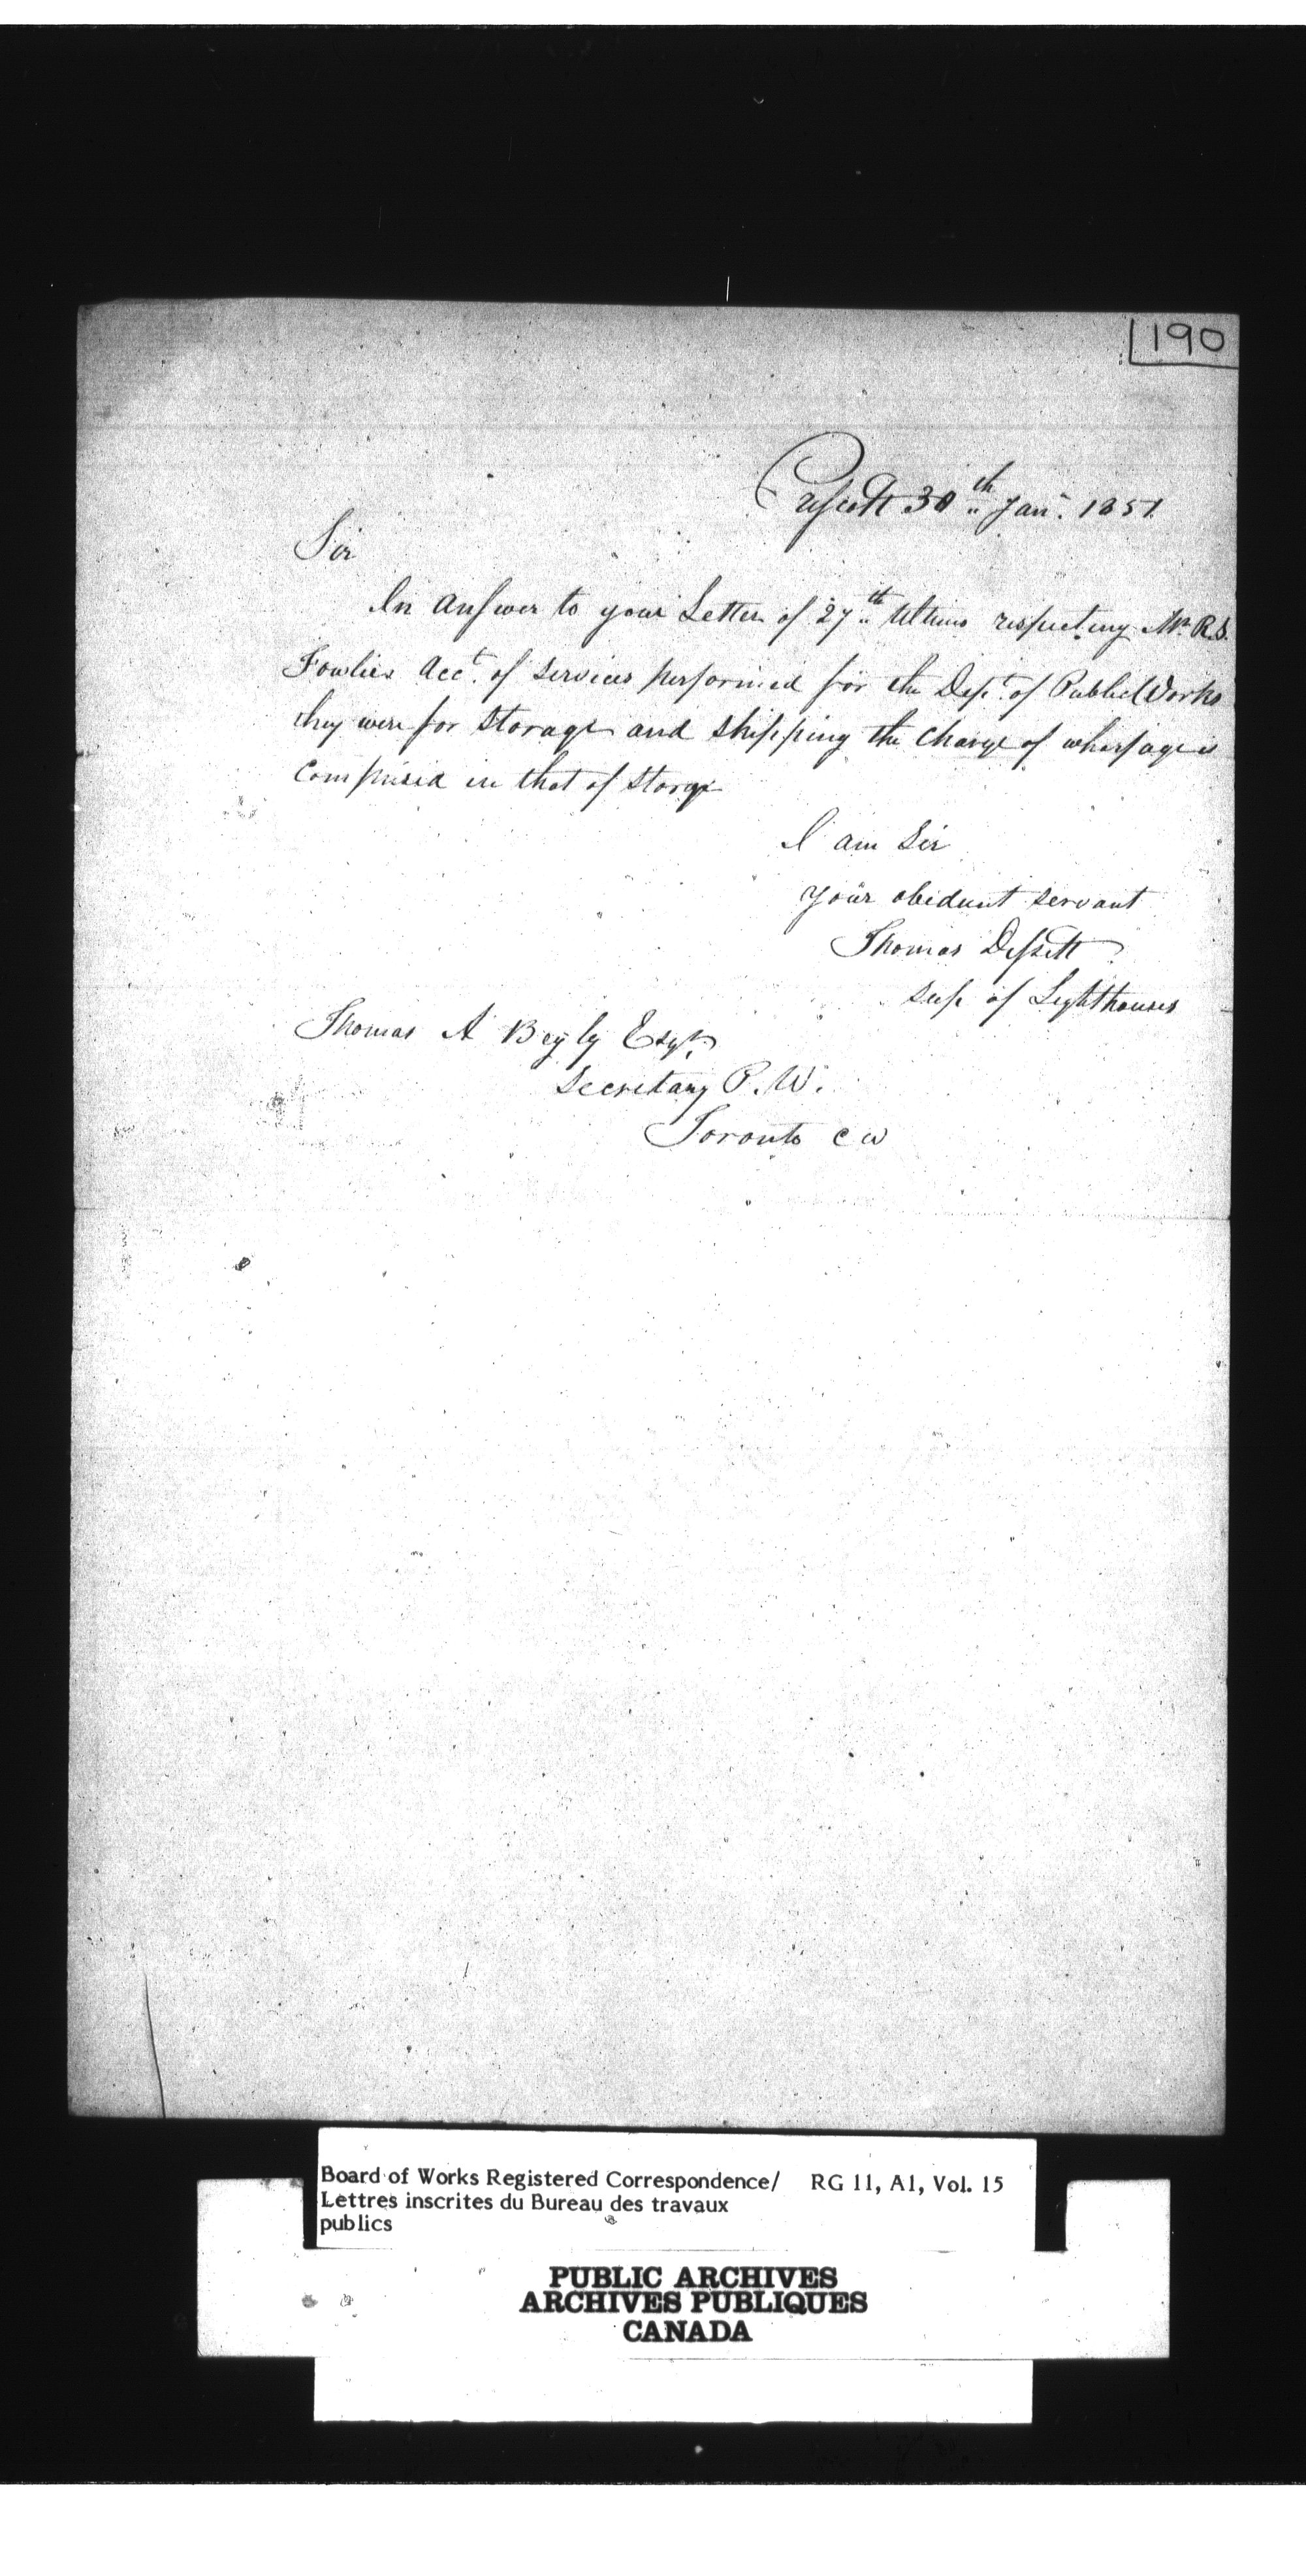 190
Prescott 30th Jany. 1851.
Sir
In answer to your Letter of 27th Ultimo respecting Mr. R.S.
Fowlies Acct. of services performed for the Dept. of Public Works
they were for storage and shipping the charge of wharfage is
comprised in that of storge
I am Sir
your obedient servant
Thomas
Sup of Lighthouses
Thomas A Begly Esqr.
Secretary P.W.
Toronto C W
Board of Works Registered Correspondence/ RG 11, A1, Vol. 15
Lettres inscrites du Bureau des travaux
publics
PUBLIC ARCHIVES
ARCHIVES PUBLIQUES
CANADA